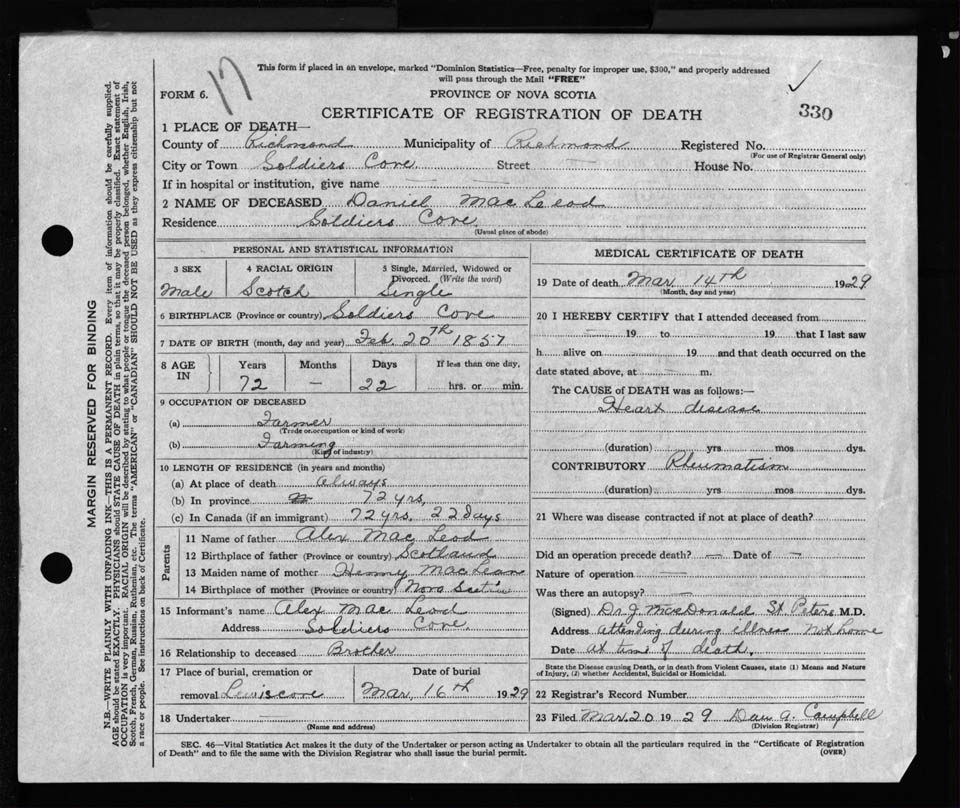 This form if placed in an envelope, marked "Dominion Statistics—Free, penalty for improper use, $300," and properly addressed
will pass through the Mail "FREE"
17
FORM 6.
PROVINCE OF NOVA SCOTIA
CERTIFICATE OF REGISTRATION OF DEATH
330
1 PLACE OF DEATH—
County of Richmond Municipality of Richmond Registered No.
(For use of Registrar General only)
City or Town Soldiers Cove Street — House No.
If in hospital or institution, give name — —
2 NAME OF DECEASED Daniel Mac Leod
Residence Soldiers Cove
(Usual place of abode)
PERSONAL AND STATISTICAL INFORMATION
3 SEX 4 RACIAL ORIGIN 5 Single, Married, Widowed or
Divorced. (Write the word)
Male Scotch Single
6 BIRTHPLACE (Province or country) Soldiers Cove
7 DATE OF BIRTH (month, day and year) Feb. 20th 1857
8 AGE IN Years Months Days If less than one day,
72 — 22 hrs. or min.
9 OCCUPATION OF DECEASED
(a) Farmer
(Trade or occupation or kind of work)
(b) Farming
(Kind of industry)
10 LENGTH OF RESIDENCE (in years and months)
(a) At place of death always
(b) In province 72 yrs,
(c) In Canada (if an immigrant) 72 yrs, 22 days
Parents
11 Name of father Alex Mac Leod
12 Birthplace of father (Province or country) Scotland
13 Maiden name of mother Henny MacLean
14 Birthplace of mother (Province or country) Nova Scotia
15 Informant's name Alex Mac Leod
Address Soldiers Cove.
16 Relationship to deceased Brother
17 Place of burial, cremation or Date of burial
removal Mar, 16th 1929
18 Undertaker —
(Name and address)
MEDICAL CERTIFICATE OF DEATH
19 Date of death Mar, 14th 1929
(Month, day and year)
20 I HEREBY CERTIFY that I attended deceased from
— 19 to — 19 that I last saw
h alive on — 19 and that death occurred on the
date stated above, at — m.
The CAUSE of DEATH was as follows:—
Heart disease
(duration) yrs mos dys.
CONTRIBUTORY Rheumatism
(duration) yrs mos dys.
21 Where was disease contracted if not at place of death?
Did an operation precede death? — Date of —
Nature of operation —
Was there an autopsy? —
(Signed) Dr J. MacDonald St Peters M.D.
Address attending during illness Not home
Date at time of death.
State the Disease causing Death, or in death from Violent Causes, state (1) Means and Nature
of Injury, (2) whether Accidental, Suicidal or Homicidal.
22 Registrar's Record Number
23 Filed Mar. 20 1929 Dan A. Campbell
(Division Registrar)
SEC. 46—Vital Statistics Act makes it the duty of the Undertaker or person acting as Undertaker to obtain all the particulars required in the "Certificate of Registration
of Death" and to file the same with the Division Registrar who shall issue the burial permit.
(OVER)
MARGIN RESERVED FOR BINDING
N.B.—WRITE PLAINLY WITH UNFADING INK—THIS IS A PERMANENT RECORD. Every item of information should be carefully supplied.
AGE should be stated EXACTLY. PHYSICIANS should STATE CAUSE OF DEATH in plain terms, so that it may be properly classified. Exact statement of
OCCUPATION is very important. RACIAL ORIGIN will be described by stating to what people or tongue the deceased person belonged, whether English, Irish,
Scotch, French, German, Russian, Ruthenian, etc. The terms "AMERICAN" or "CANADIAN" SHOULD NOT BE USED as they express citizenship but not
a race or people. See instructions on back of Certificate.